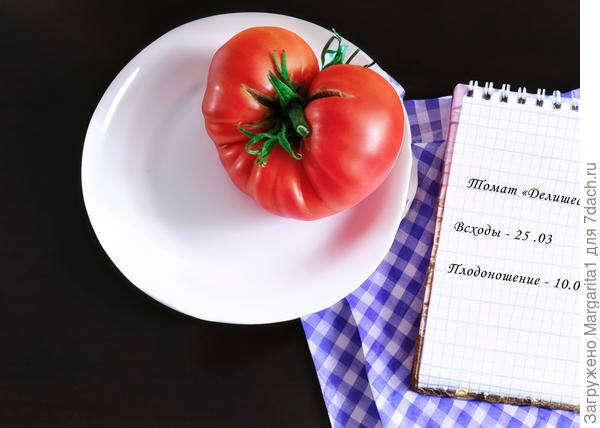 Томат «Делишес
Всходы - 25 .03
Плодоношение - 10.0
Загружено Margarita1 для 7dach.ru